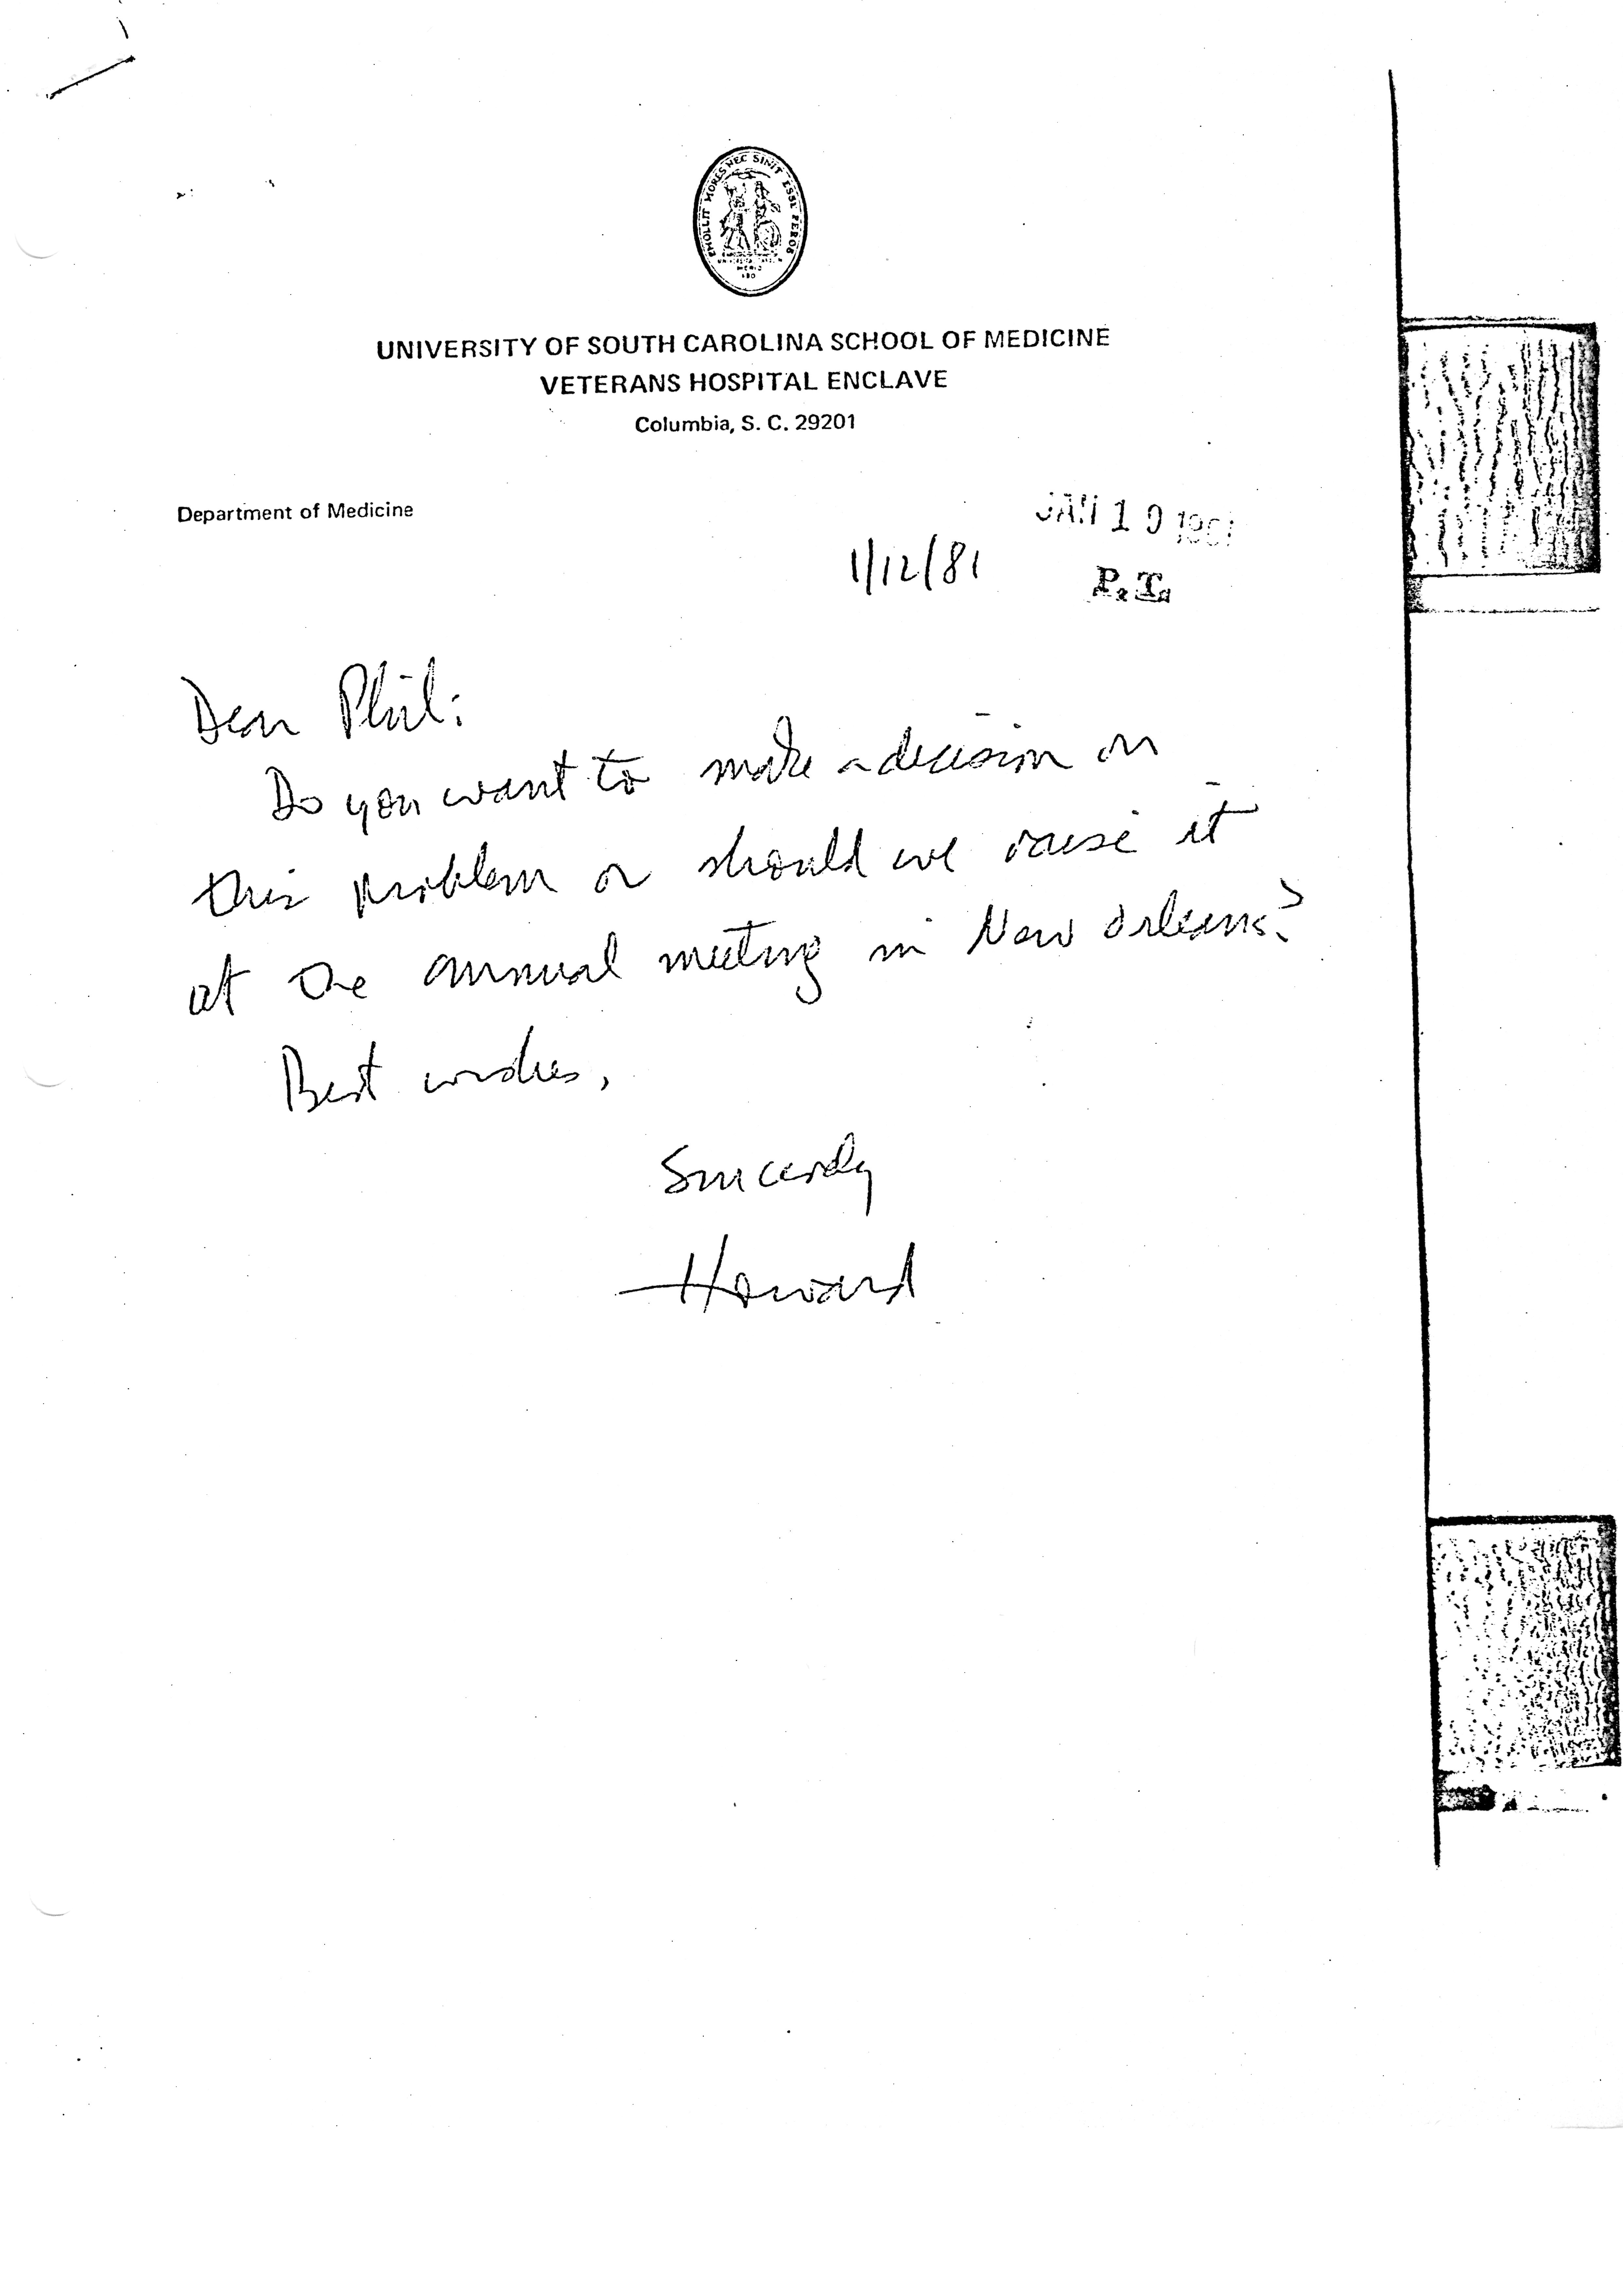 EMOLLIT MORES NEC SINIT ESSE FEROS
UNIVERSITY OF SOUTH CAROLINA SCHOOL OF MEDICINE
VETERANS HOSPITAL ENCLAVE
Columbia, S. C. 29201
Department of Medicine
JAN 19 1981
1/12/81
P. T.
Dear Phil:
Do you want to make a decision on
this problem or should we raise it
at the annual meeting in New Orleans?
Best wishes,
Sincerely
Howard